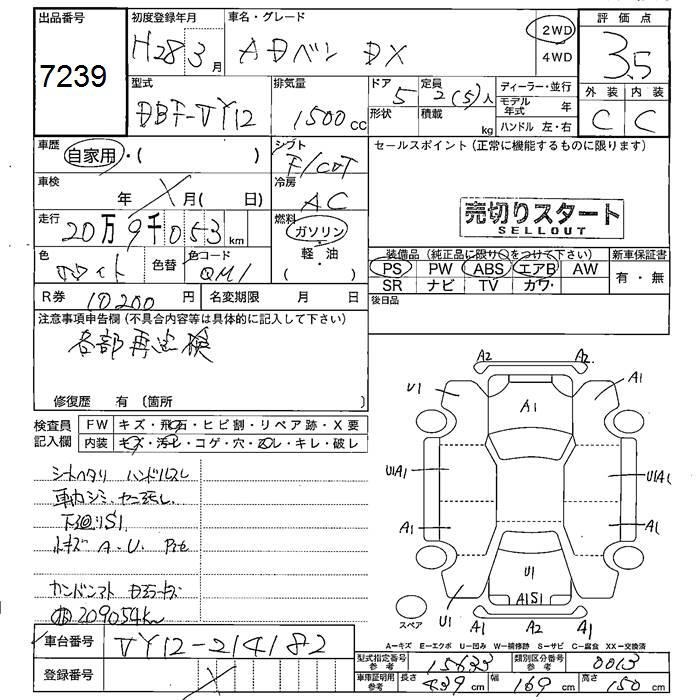 出品番号
7239
初度登録年月
H28 3月
車名・グレード
ADバン DX
2WD
4WD
評価点
3.5
外装 内装
C C
型式
DBF-VY12
排気量
1500cc
ドア
5
形状
定員
2(5)人
積載
kg
ディーラー・並行
モデル年式 年
ハンドル 左・右
車歴
自家用・( )
シフト
F/CAT
車検
年 月( 日)
冷房
AC
走行
20万9千053km
燃料
ガソリン
軽・油
( )
色
ホワイト
色替
色コード
QM1
R券
10200円
名変期限 月 日
セールスポイント(正常に機能するものに限ります)
売切りスタート
SELLOUT
装備品(純正品に限り○をつけて下さい)
PS PW ABS エアB AW
SR ナビ TV カワ
新車保証書
有・無
後日品
注意事項申告欄(不具合内容等は具体的に記入して下さい)
各部再点検
修復歴 有〔箇所
検査員記入欄
FW キズ・飛石・ヒビ割・リペア跡・X要
内装 キズ・汚レ・コゲ・穴・凹レ・キレ・破レ
シートヘタリ ハンドルスレ
下廻りS1
209054km
車台番号
VY12-214182
登録番号
A2 A2
U1 A1
A1
U1A1 U1A1
A1 A1
U1
A1S1
U1 A1 A2 A1
スペア
A-キズ E-エクボ U-凹み W-補修跡 S-サビ C-腐食 XX-交換済
型式指定番号 参考
15633
類別区分番号 参考
0013
車庫証明用 参考
長さ 439cm
幅 169cm
高さ 150cm